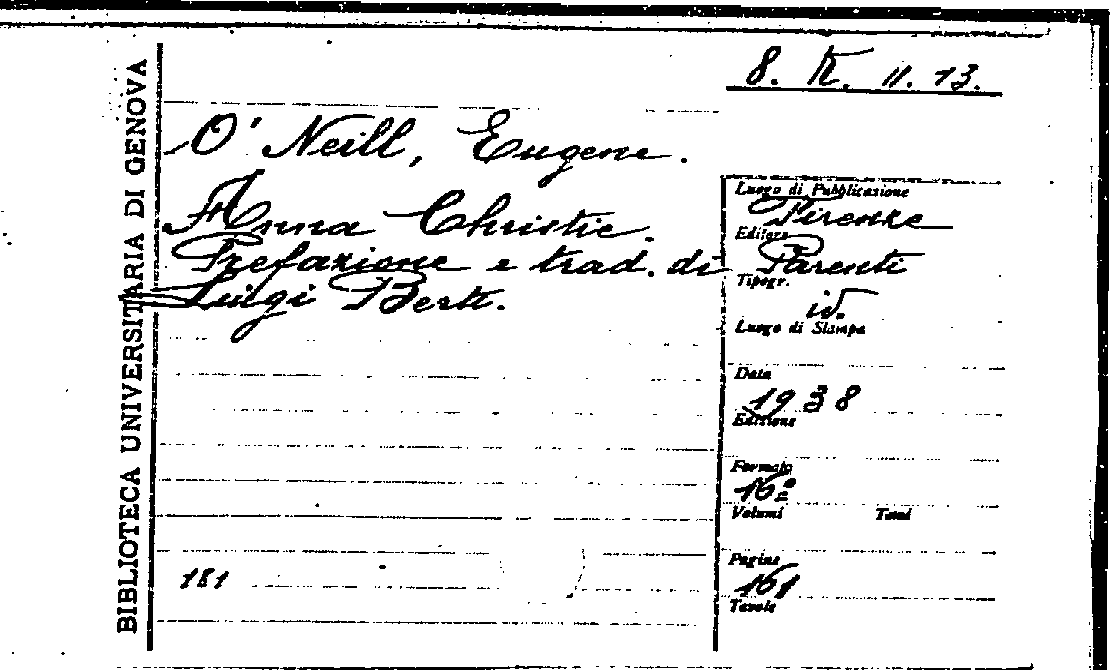 BIBLIOTECA UNIVERSITARIA DI GENOVA
8. K. 11. 13.
O' Neill, Eugene.
Anna Christie.
Prefazione e trad. di
Luigi Berti.
181
Luogo di Pubblicazione
Firenze
Editore
Parenti
Tipogr.
id.
Luogo di Stampa
Data
1938
Edizione
Formato
16º
Volumi Tomi
Pagine
161
Tavole